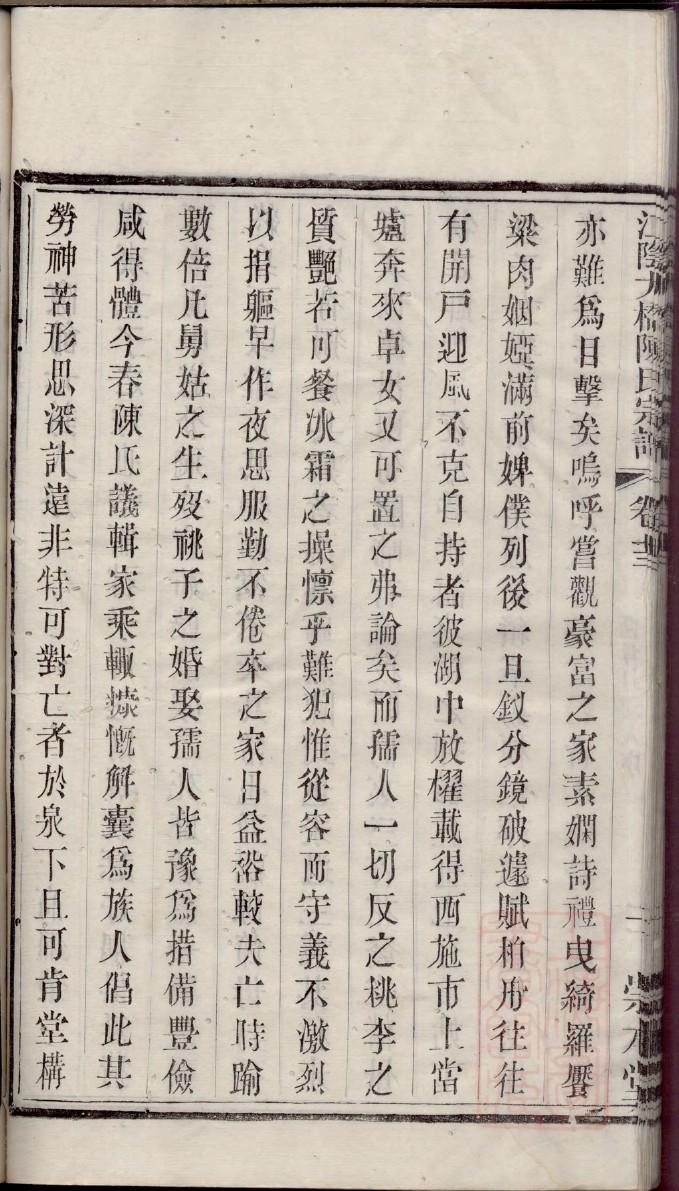 江陰九橋陳氏宗譜 卷十三
亦難爲目擊矣嗚呼嘗觀豪富之家素嫻詩禮曳綺羅饜
粱肉姻婭滿前婢僕列後一旦釵分鏡破遽賦柏舟往往
有開戸迎風不克自持者彼湖中放櫂載得西施市上當
壚奔來卓女又可置之弗論矣而孺人一切反之桃李之
質艷若可餐冰霜之操懍乎難犯惟從容而守義不激烈
以捐軀早作夜思服勤不倦卒之家日益裕較夫亡時踰
數倍凡舅姑之生歿祧子之婚娶孺人皆豫爲措備豐儉
咸得體今春陳氏議輯家乘輒慷慨解囊爲族人倡此其
勞神苦形思深計遠非特可對亡者於泉下且可肯堂構